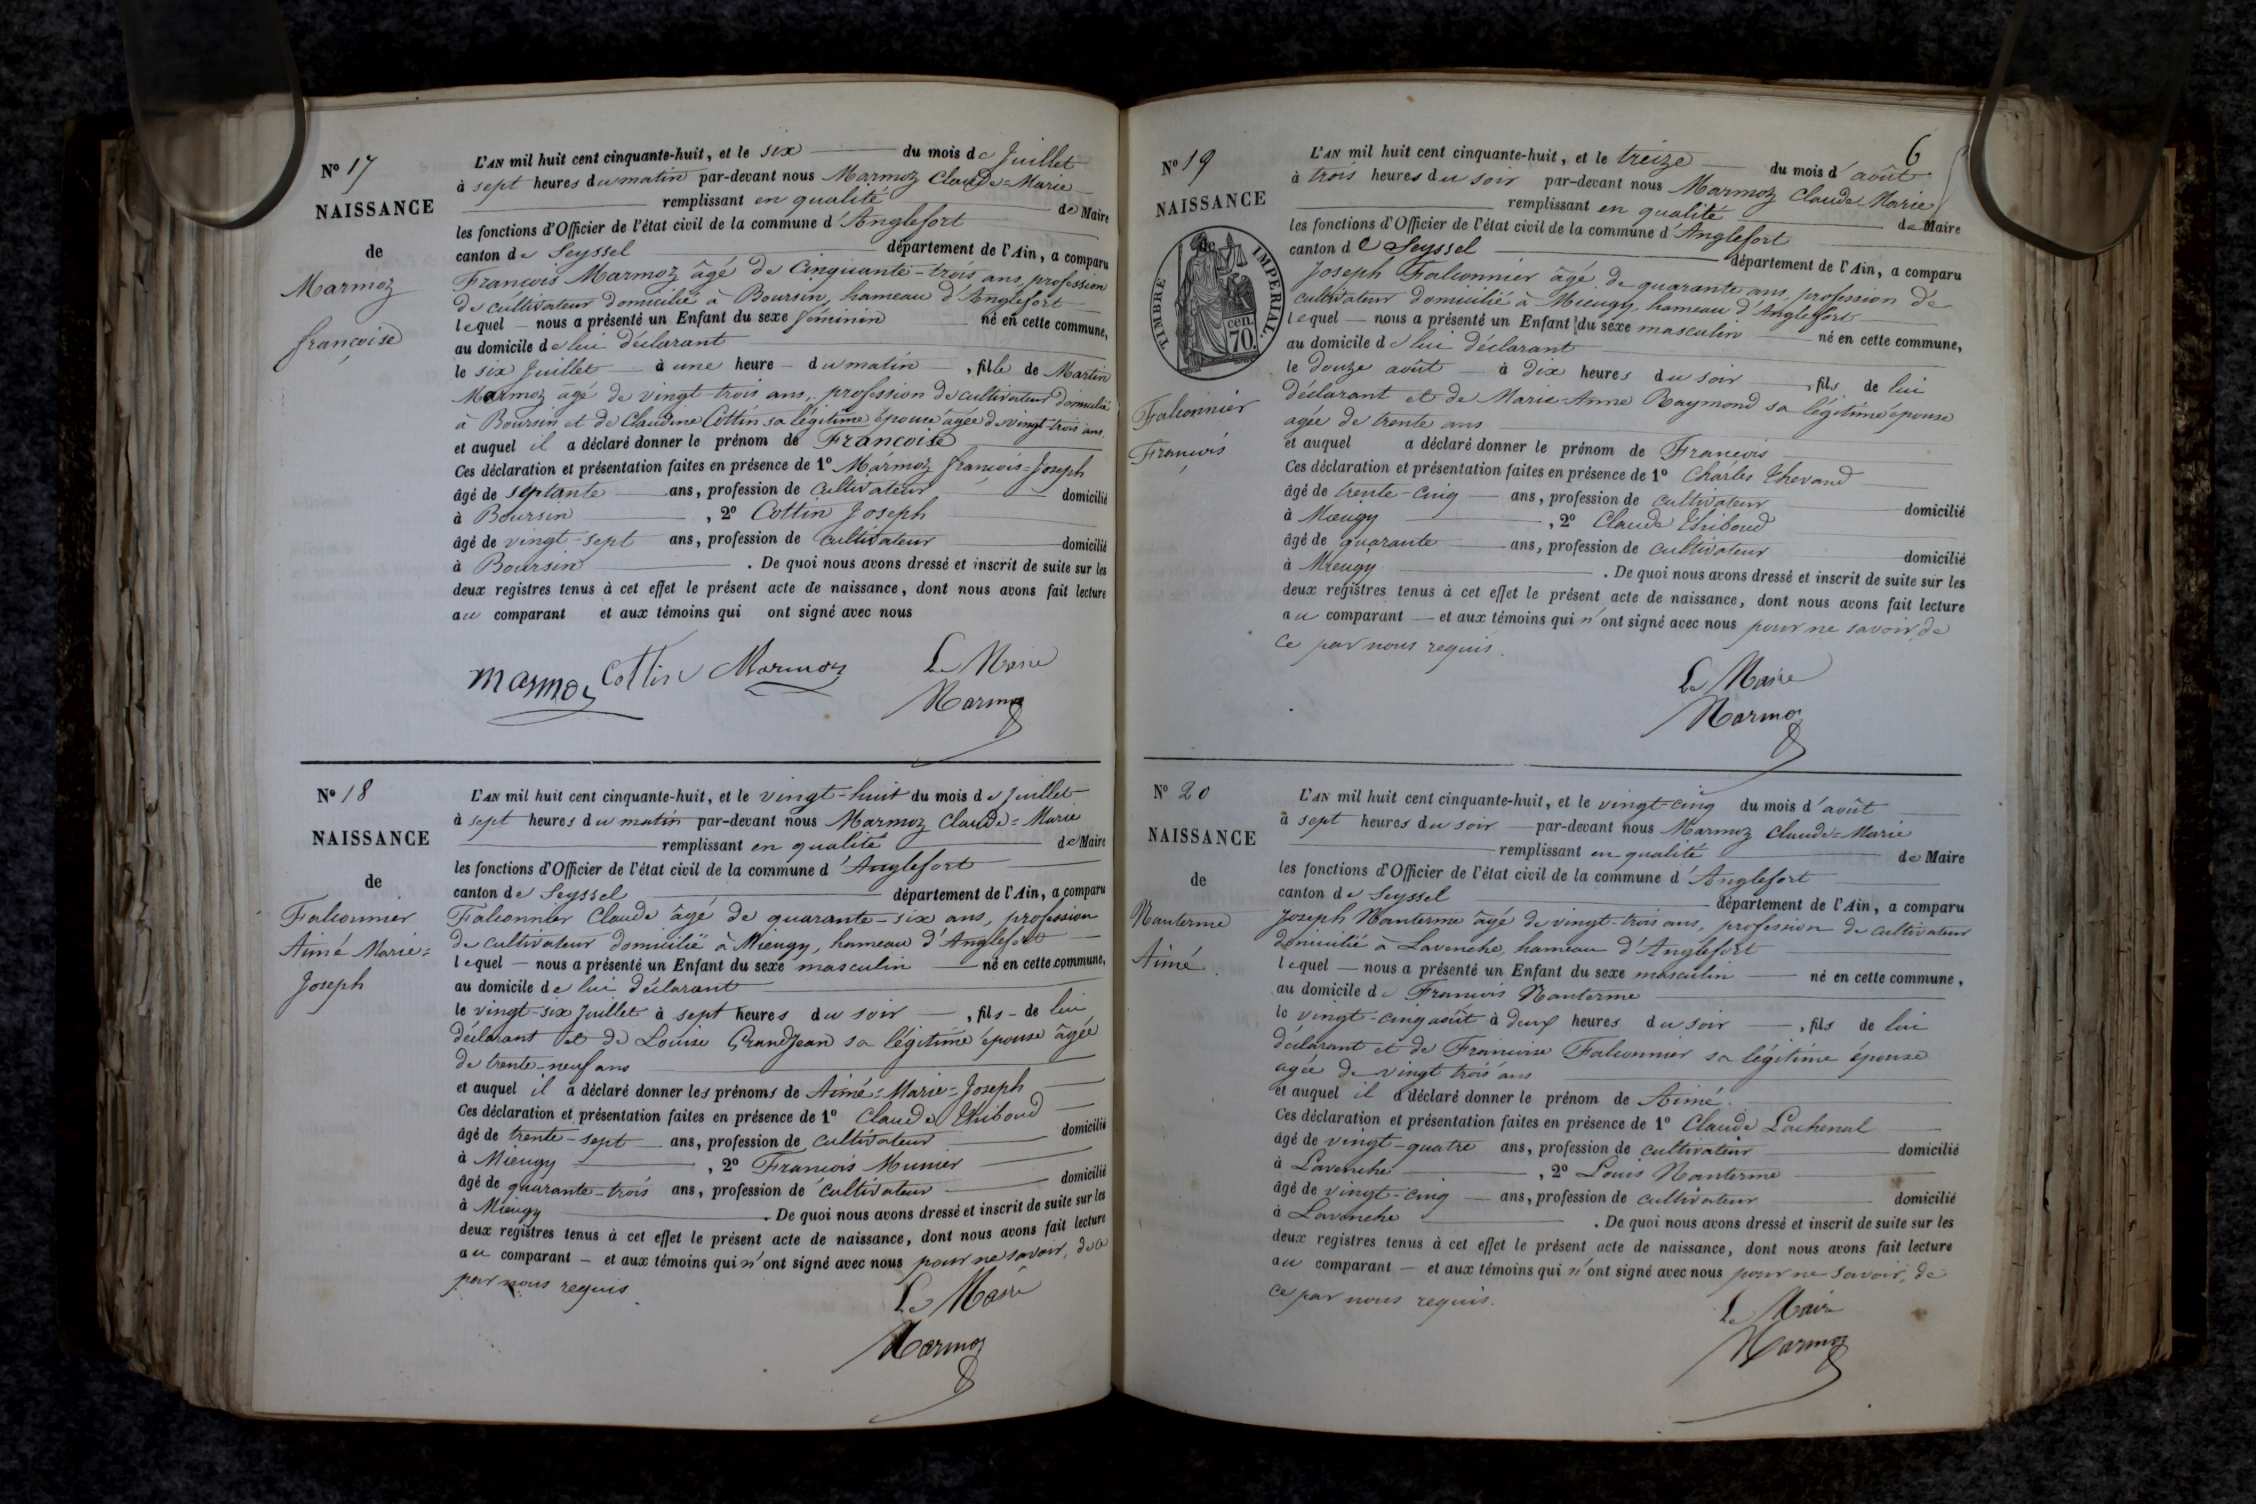 Nº 17
NAISSANCE
de
Marmoz
françoise
L'AN mil huit cent cinquante-huit, et le six du mois de Juillet
à sept heures du matin par-devant nous Marmoz Claude=Marie
remplissant en qualité de Maire
les fonctions d'Officier de l'état civil de la commune d'Anglefort
canton de Seyssel département de l'Ain, a comparu
François Marmoz âgé de Cinquante-trois ans, profession
de cultivateur domicilié à Boursin, hameau d'Anglefort
lequel nous a présenté un Enfant du sexe féminin né en cette commune,
au domicile de lui déclarant
le six Juillet à une heure du matin, fille de Martin
Marmoz âgé de vingt-trois ans, profession de cultivateur domicilié
à Boursin et de Claudine Cottin sa légitime épouse âgée de vingt-trois ans.
et auquel il a déclaré donner le prénom de Françoise
Ces déclaration et présentation faites en présence de 1º Marmoz françois=Joseph
âgé de septante ans, profession de Cultivateur domicilié
à Boursin, 2º Cottin Joseph
âgé de vingt-sept ans, profession de Cultivateur domicilié
à Boursin. De quoi nous avons dressé et inscrit de suite sur les
deux registres tenus à cet effet le présent acte de naissance, dont nous avons fait lecture
au comparant et aux témoins qui ont signé avec nous
Marmoz Cottin Marmoz Le Maire
Marmoz
Nº 18
NAISSANCE
de
Falconnier
Aimé Marie=
Joseph
L'AN mil huit cent cinquante-huit, et le vingt-huit du mois de Juillet
à sept heures du matin par-devant nous Marmoz Claude=Marie
remplissant en qualité de Maire
les fonctions d'Officier de l'état civil de la commune d'Anglefort
canton de Seyssel département de l'Ain, a comparu
Falconnier Claude âgé de quarante-six ans, profession
de cultivateur domicilié à Mieugy, hameau d'Anglefort
lequel nous a présenté un Enfant du sexe masculin né en cette commune,
au domicile de lui déclarant
le vingt-six Juillet à sept heures du soir, fils de lui
déclarant et de Louise GrandJean sa légitime épouse âgée
de trente-neuf ans
et auquel il a déclaré donner les prénoms de Aimé=Marie=Joseph
Ces déclaration et présentation faites en présence de 1º Claude Thiboud
âgé de trente-sept ans, profession de cultivateur domicilié
à Mieugy, 2º François Munier
âgé de quarante-trois ans, profession de cultivateur domicilié
à Mieugy. De quoi nous avons dressé et inscrit de suite sur les
deux registres tenus à cet effet le présent acte de naissance, dont nous avons fait lecture
au comparant et aux témoins qui n'ont signé avec nous pour ne savoir, de ce
par nous requis
Le Maire
Marmoz
6
Nº 19
NAISSANCE
TIMBRE IMPERIAL.
cen.
70.
Falconnier
François
L'AN mil huit cent cinquante-huit, et le treize du mois d'août
à trois heures du soir par-devant nous Marmoz Claude Marie
remplissant en qualité de Maire
les fonctions d'Officier de l'état civil de la commune d'Anglefort
canton de Seyssel département de l'Ain, a comparu
Joseph Falconnier âgé de quarante ans, profession de
cultivateur domicilié à Mieugy hameau d'Anglefort
lequel nous a présenté un Enfant du sexe masculin né en cette commune,
au domicile de lui déclarant
le douze août à dix heures du soir, fils de lui
déclarant et de Marie-Anne Raymond sa légitime épouse
agée de trente ans
et auquel a déclaré donner le prénom de François
Ces déclaration et présentation faites en présence de 1º Charles
âgé de trente-cinq ans, profession de cultivateur domicilié
à Mieugy, 2º Claude Thiboud
âgé de quarante ans, profession de cultivateur domicilié
à Mieugy. De quoi nous avons dressé et inscrit de suite sur les
deux registres tenus à cet effet le présent acte de naissance, dont nous avons fait lecture
au comparant et aux témoins qui n'ont signé avec nous pour ne savoir, de
ce par nous requis.
Le Maire
Marmoz
Nº 20
NAISSANCE
de
Nanterme
Aimé.
L'AN mil huit cent cinquante-huit, et le vingt-cinq du mois d'août
à sept heures du soir par-devant nous Marmoz Claude=Marie
remplissant en qualité de Maire
les fonctions d'Officier de l'état civil de la commune d'Anglefort
canton de Seyssel département de l'Ain, a comparu
Joseph Nanterme âgé de vingt-trois ans, profession de cultivateur
domicilié à Lavenche, hameau d'Anglefort
lequel nous a présenté un Enfant du sexe masculin né en cette commune,
au domicile de François Nanterme
le vingt-cinq août à deux heures du soir, fils de lui
déclarant et de Françoise Falconnier sa légitime épouse
agée de vingt trois ans
et auquel il a déclaré donner le prénom de Aimé.
Ces déclaration et présentation faites en présence de 1º Claude Lachenal
âgé de vingt-quatre ans, profession de cultivateur domicilié
à Lavenche, 2º Louis Nanterme
âgé de vingt-cinq ans, profession de cultivateur domicilié
à Lavenche. De quoi nous avons dressé et inscrit de suite sur les
deux registres tenus à cet effet le présent acte de naissance, dont nous avons fait lecture
au comparant et aux témoins qui n'ont signé avec nous pour ne savoir, de
ce par nous requis.
Le Maire
Marmoz